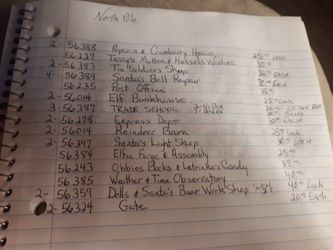 North Pole
2- 56388 Popcorn & Cranberry House 25.00 Each
56227 Tassy's Mitten & Hassels Woolies 30.00
2- 56383 Tin Soldiers Shop 30.00 Each
4- 56389 Santa's Bell Repair 30.00 Each
56235 Post Office 35.00
2- 56014 Elf Bunkhouse 25.00 Each
3- 56387 TRADE SCHOOL
2- 56278 Express Depot 30.00 Each
2- 56014 Reindeer Barn 25.00 Each
2- 56397 Santa's Light Shop 30.00 Each
56384 Elfin Forge & Assembly 25.00
56243 Obbies Books & Letrinka's Candy 35.00
56385 Weather & Time Observatory 40.00
2- 56359 Dolls & Santa's Bear Work Shop 40.00 Each
2- 56324 Gate 20.00 Each